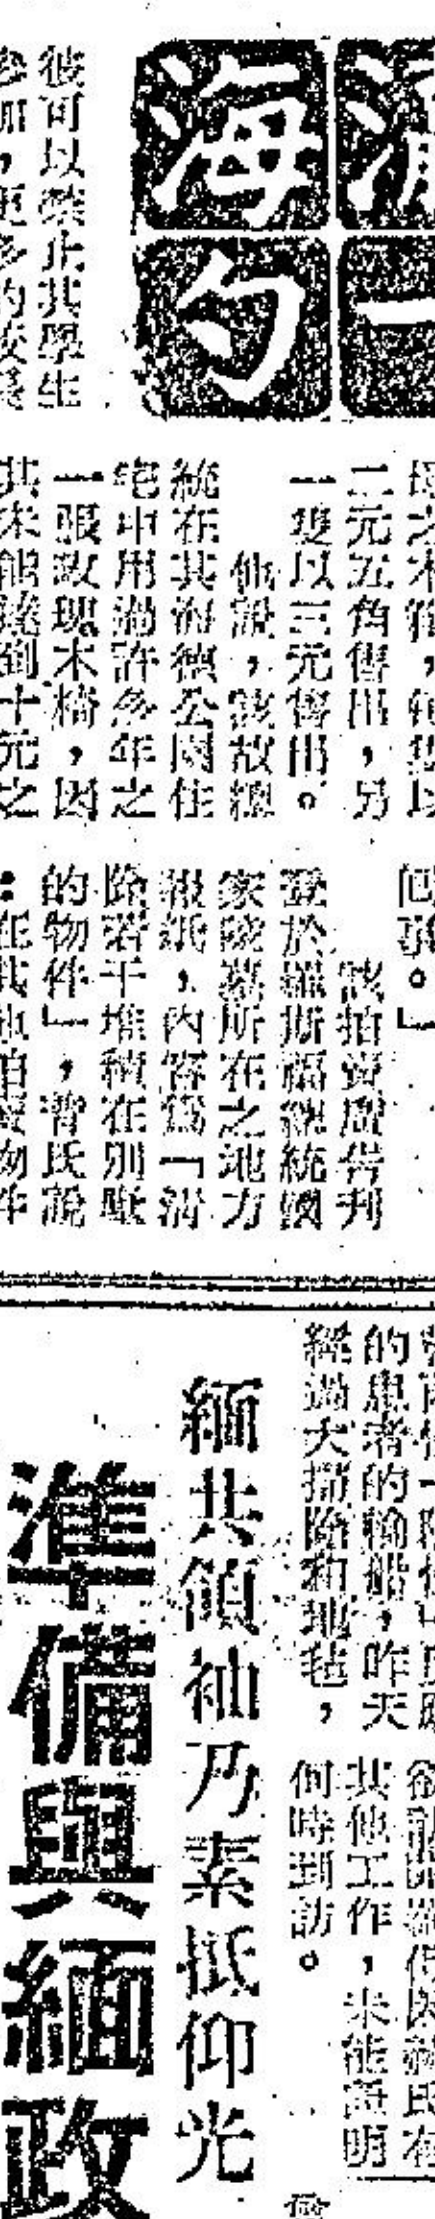 海
勺一
彼可以禁止其學生
參加，更多的校長
二元五角售出，另
一隻以三元售出。
他說，該故總
統在其海德公園住
宅中用過許多年之
一張玫瑰木椅，因
其未能達到十元之
回事。」
該拍賣廣告刊
登於羅斯福總統國
家陵墓所在之地方
報紙，內容為「清
除若干堆積在別墅
的物件」，曾氏說
的患者的輪船，昨天
經過大掃除和地毡，
其他工作，未能證明
何時到訪。
緬共領袖乃素抵仰光
準備與緬政